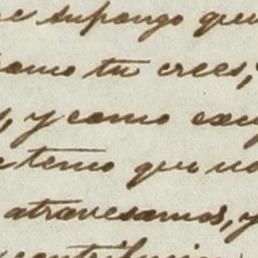 e supongo que
como tu crees,
, y como
temo que no
atravesamos, y